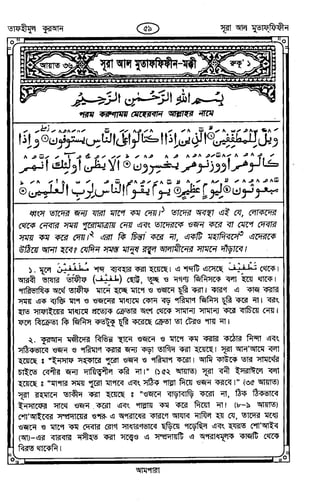 তাফহীমুল কুরআন ৫৯ সূরা আল মুতাফফিফীন
আয়াত ৩৬ সূরা আল মুতাফ্‌ফিফীন-মক্কী রুকূ' ১
بِسْمِ اللهِ الرَّحْمٰنِ الرَّحِيْمِ
পরম করুণাময় মেহেরবান আল্লাহর নামে
وَيْلٌ لِّلْمُطَفِّفِيْنَ ۝ الَّذِيْنَ اِذَا اكْتَالُوْا عَلَى النَّاسِ يَسْتَوْفُوْنَ ۝ وَاِذَا
كَالُوْهُمْ اَوْ وَّزَنُوْهُمْ يُخْسِرُوْنَ ۝ اَلَا يَظُنُّ اُولٰٓئِكَ اَنَّهُمْ
مَّبْعُوْثُوْنَ ۝ لِيَوْمٍ عَظِيْمٍ ۝ يَّوْمَ يَقُوْمُ النَّاسُ لِرَبِّ الْعٰلَمِيْنَ ۝
ধ্বংস তাদের জন্য যারা মাপে কম দেয়।১ তাদের অবস্থা এই যে, লোকদের
থেকে নেবার সময় পুরোমাত্রায় নেয় এবং তাদেরকে ওজন করে বা মেপে দেবার
সময় কম করে দেয়।২ এরা কি চিন্তা করে না, একটি মহাদিবসে৩ এদেরকে
উঠিয়ে আনা হবে? যেদিন সমস্ত মানুষ রব্বুল আলামীনের সামনে দাঁড়াবে।
১. মূলে مُطَفِّفِيْنَ শব্দ ব্যবহার করা হয়েছে। এ শব্দটি এসেছে تَطْفِيْف থেকে।
আরবী ভাষায় তাতফীফ (تَطْفِيْف) ছোট, তুচ্ছ ও নগণ্য জিনিসকে বলা হয়ে থাকে।
পারিভাষিক অর্থে তাতফীফ মানে হচ্ছে মাপে ও ওজনে চুরি করা। কারণ এ কাজ করার
সময় এক ব্যক্তি মাপ ও ওজনের মাধ্যমে কোন বড় পরিমাণ জিনিস চুরি করে না। বরং
হাত সাফাইয়ের মাধ্যমে প্রত্যেক ক্রেতার অংশ থেকে সামান্য সামান্য করে বাঁচিয়ে নেয়।
ফলে বিক্রেতা কি জিনিস কতটুকু চুরি করেছে ক্রেতা তা টেরও পায় না।
২. কুরআন মজীদের বিভিন্ন স্থানে ওজনে ও মাপে কম করার কঠোর নিন্দা এবং
সঠিকভাবে ওজন ও পরিমাপ করার জন্য কড়া তাগিদ করা হয়েছে। সূরা আন'আমে বলা
হয়েছে : "ইনসাফ সহকারে পুরো ওজন ও পরিমাপ করো। আমি কাউকে তার সামর্থের
চাইতে বেশীর জন্য দায়িত্বশীল করি না।" (১৫২ আয়াত) সূরা বনী ইসরাঈলে বলা
হয়েছে : "মাপার সময় পুরো মাপবে এবং সঠিক পাল্লা দিয়ে ওজন করবে।" (৩৫ আয়াত)
সূরা রহমানে তাকীদ করা হয়েছে : "ওজনে বাড়াবাড়ি করো না, ঠিক ঠিকভাবে
ইনসাফের সাথে ওজন করো এবং পাল্লায় কম করে দিয়ো না। (৮-৯ আয়াত)
শো'আইবের সম্প্রদায়ের ওপর এ অপরাধের কারণে আযাব নাযিল হয় যে, তাদের মধ্যে
ওজনে ও মাপে কম দেবার রোগ সাধারণভাবে ছড়িয়ে পড়েছিল এবং হযরত শো'আইব
(আ)-এর বারবার নসীহত করা সত্ত্বেও এ সম্প্রদায়টি এ অপরাধমূলক কাজটি থেকে
বিরত থাকেনি।
আমপারা